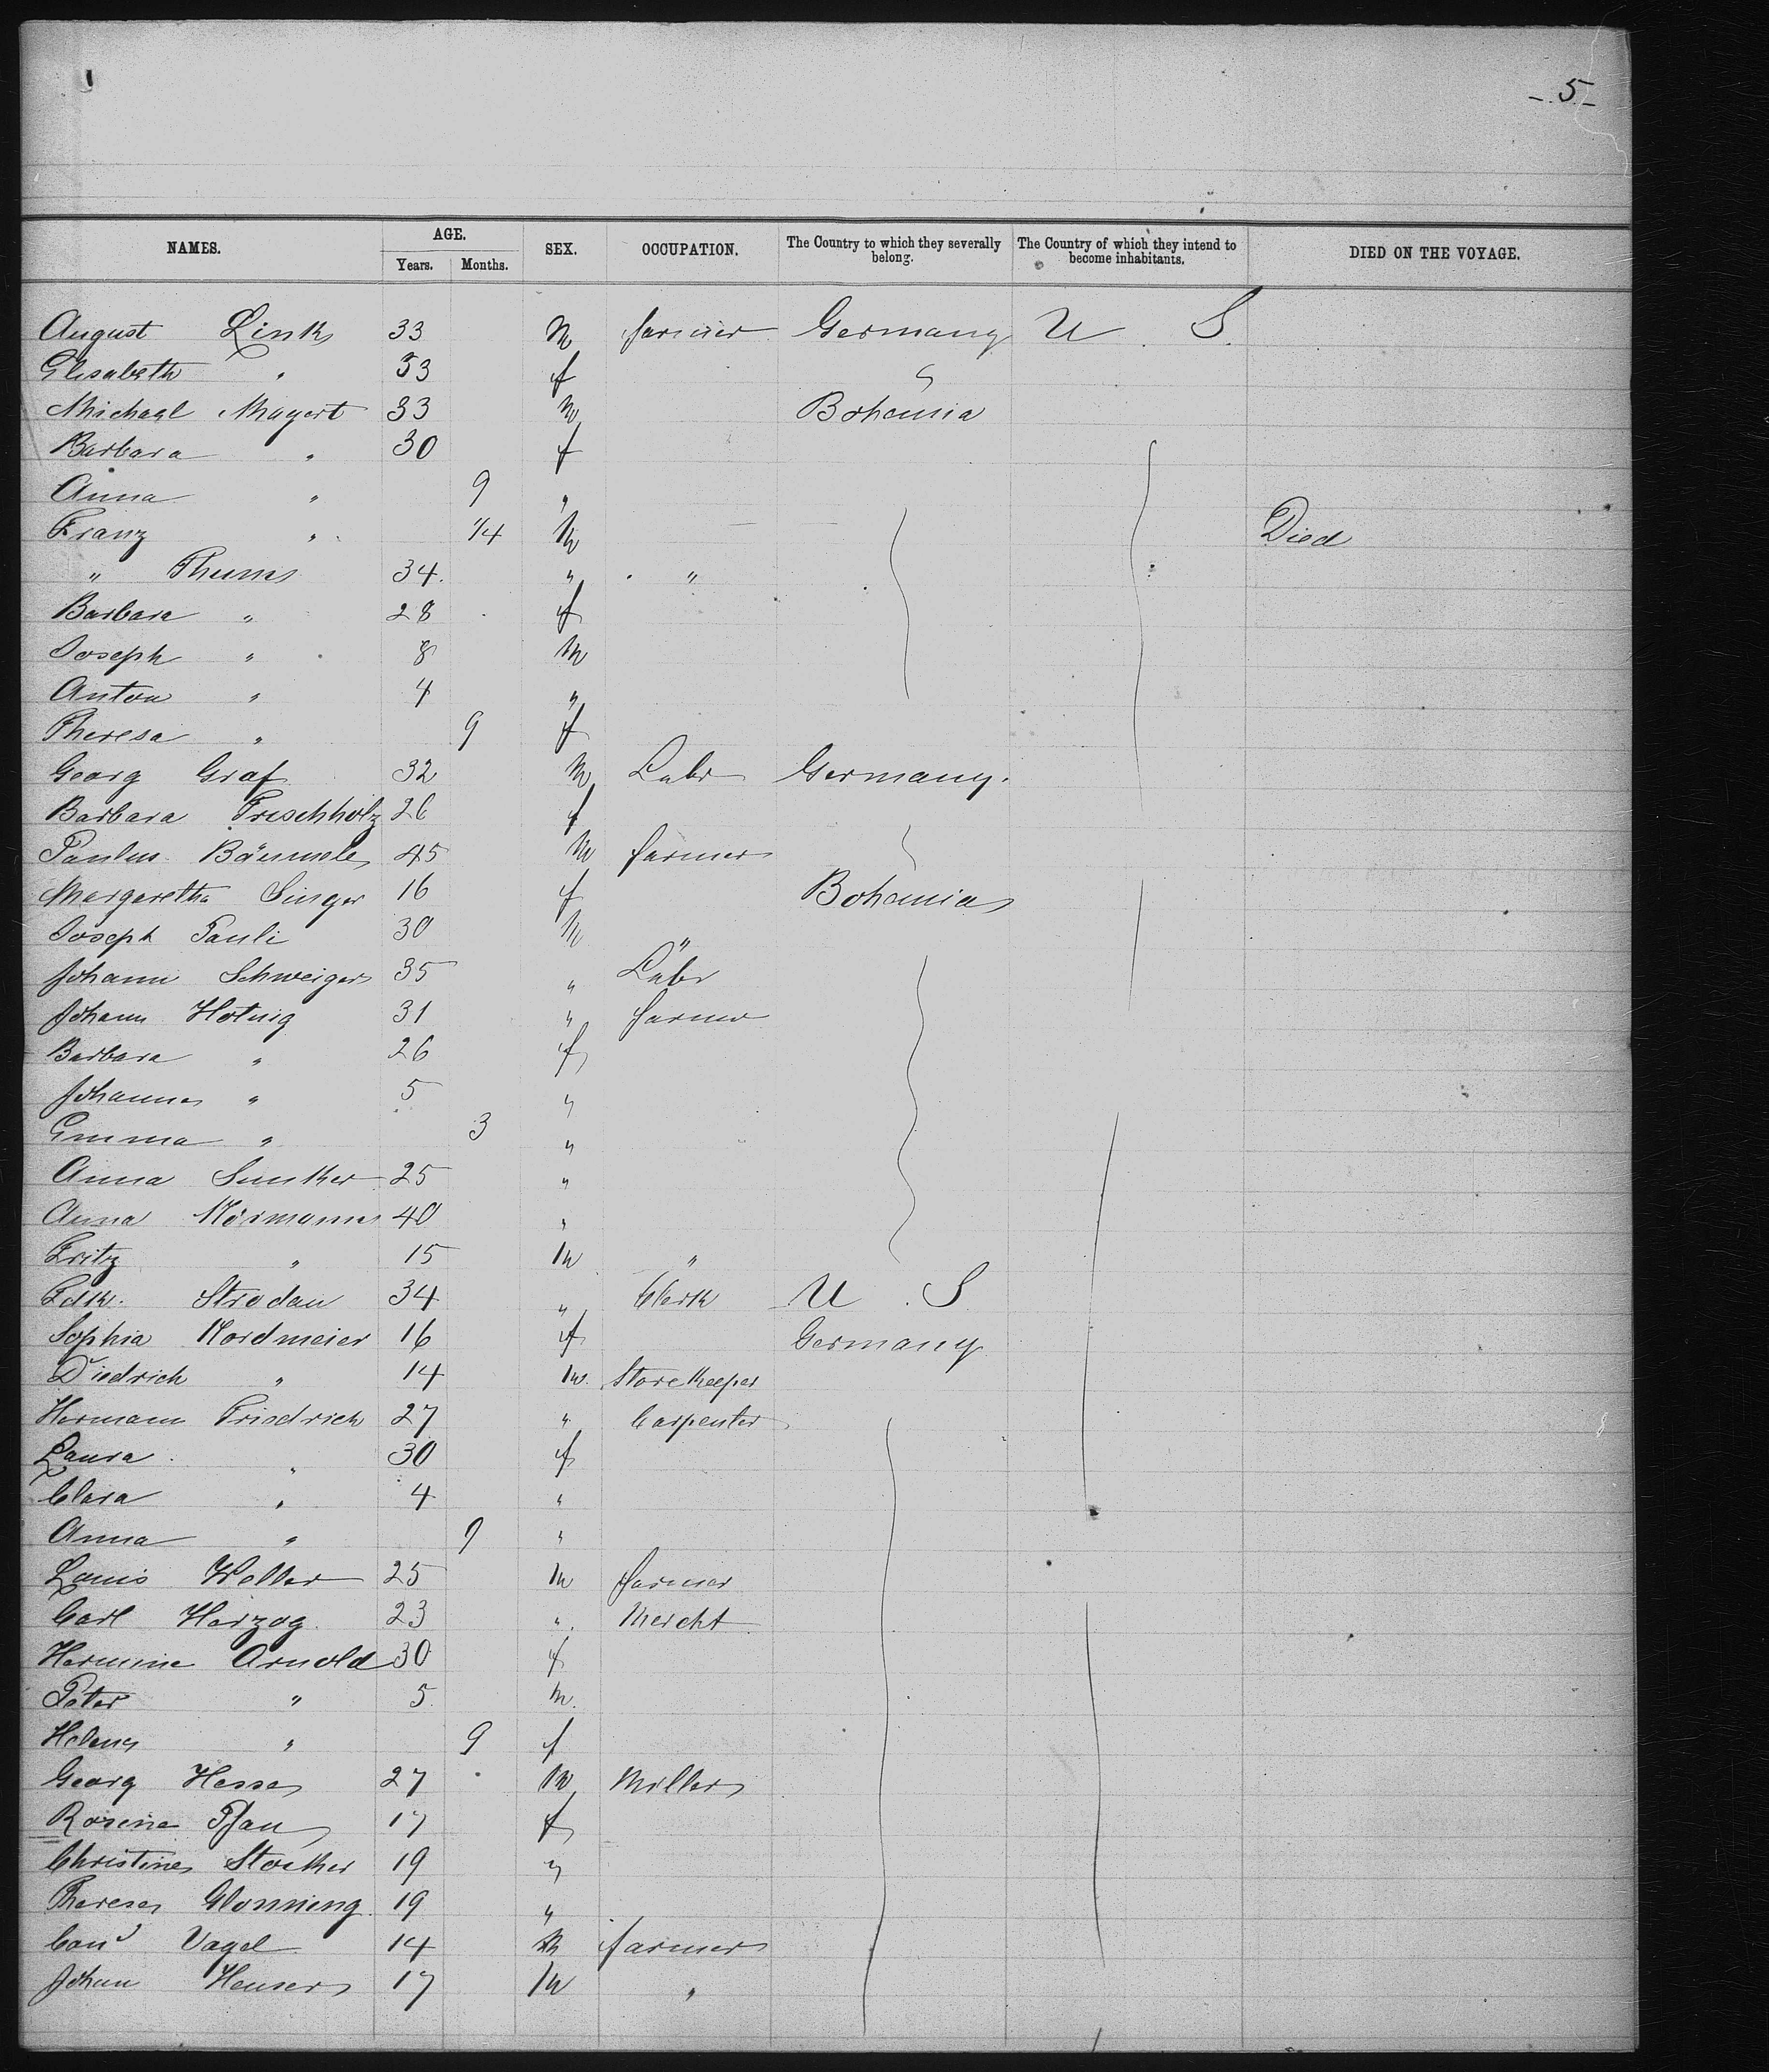 - 5 -
NAMES. AGE. SEX. OCCUPATION. The Country to which they severally belong. The Country of which they intend to become inhabitants. DIED ON THE VOYAGE.
Years. Months.
August Link 33 m farmer Germany U. S.
Elisabeth " 33 f
Michael Magert 33 m Bohemia
Barbara " 30 f
Anna " 9 "
Franz " 1/4 m Died
" Thums 34 " "
Barbara " 28 f
Joseph " 8 m
Anton " 4 "
Theresa " 9 f
Georg Graf 32 m Labr Germany.
Barbara Frischholz 26 f
Paulus Bäumele 45 m farmer
Margaretha Singer 16 f Bohemia
Joseph Pauli 30 m "
Johann Schweiger 35 " Labr
Johann Hotnig 31 " farmer
Barbara " 26 f
Johannes " 5 "
Emma " 3 "
Anna Sunker 25 "
Anna Körmann 40 "
Fritz " 15 m "
Fdk. Strodau 34 " Clerk U. S
Sophia Nordmeier 16 f Germany
Diedrich " 14 m. Storekeeper
Hermann Friedrich 27 " Carpenter
Laura " 30 f
Clara " 4 "
Anna " 9 "
Louis Weller 25 m farmer
Carl Herzog 23 " Mercht
Hermine Arnold 30 f
Peter " 5 m.
Helene " 9 f
Georg Hesse 27 m Miller
Rosine Pfau 17 f
Christine Stocker 19 "
Therese Glonning 19 "
Vagel 14 m farmer
Johann Heuser 17 m "